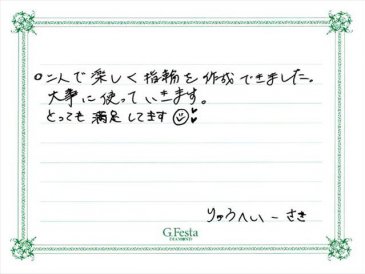 ○二人で楽しく指輪を作成できました。
大事に使っていきます。
とっても満足してます
りゅうへい－さき
G.Festa
DIAMOND